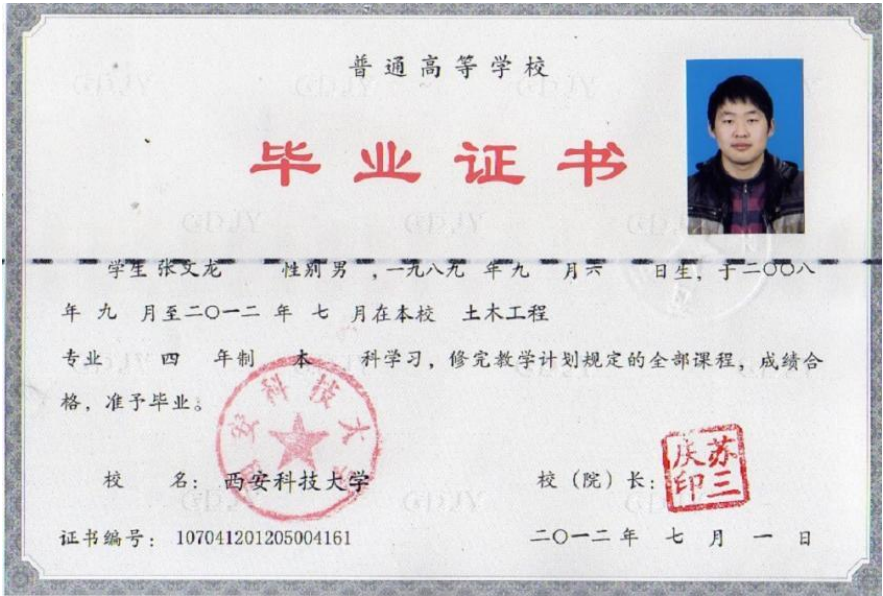 普通高等学校
毕业证书
学生 张文龙 性别 男 ,一九八九 年 九 月 六 日生, 于二〇〇八
年 九 月至二〇一二 年 七 月在本校 土木工程
专业 四 年制 本 科学习, 修完教学计划规定的全部课程, 成绩合
格, 准予毕业。
西安科技大学
校 名: 西安科技大学
校 (院) 长:
苏三庆印
证书编号: 107041201205004161
二〇一二 年 七 月 一 日